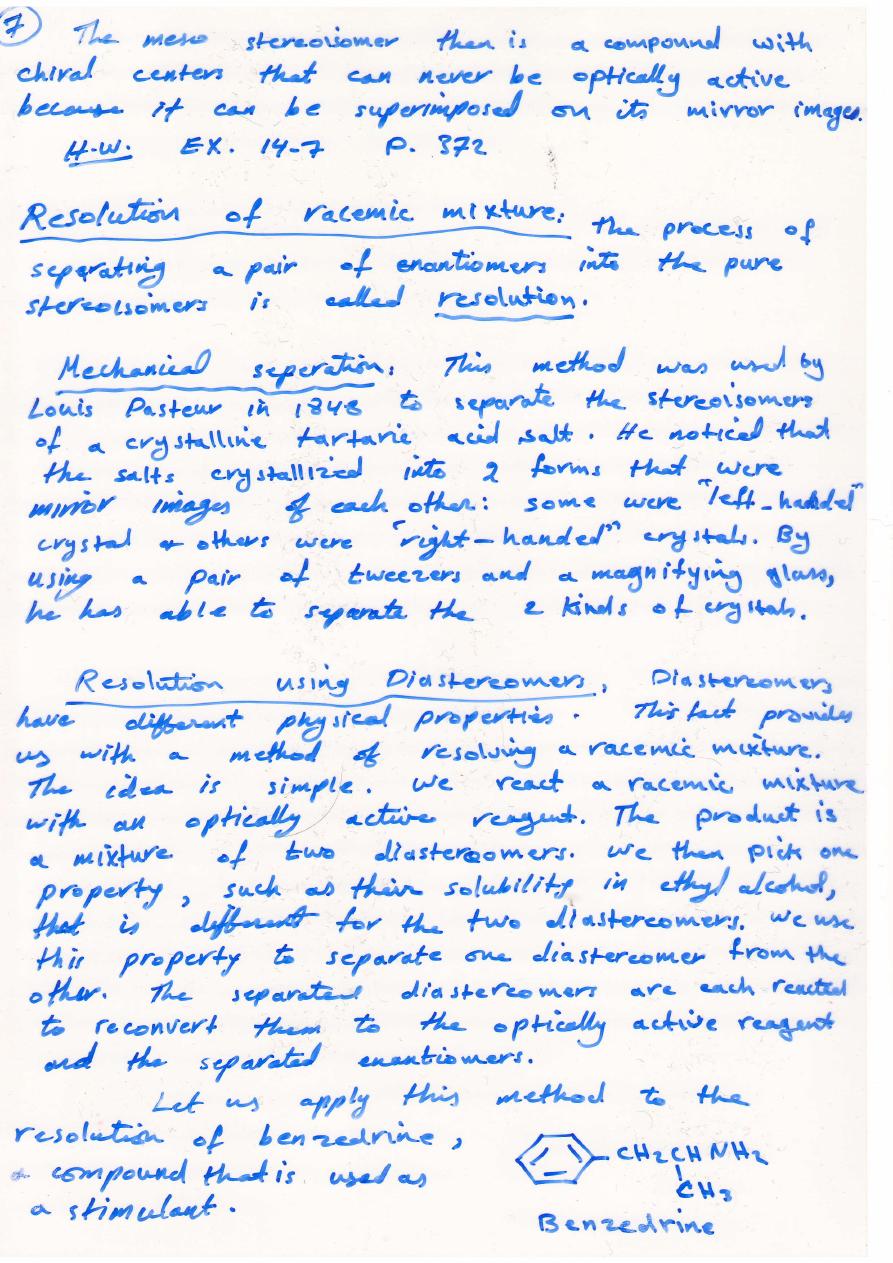 7
The meso stereoisomer then is a compound with
chiral centers that can never be optically active
because it can be superimposed on its mirror images.
H.W. EX. 14-7 P. 372
Resolution of racemic mixture: the process of
separating a pair of enantiomers into the pure
stereoisomers is called resolution.
Mechanical seperation: This method was used by
Louis Pasteur in 1848 to separate the stereoisomers
of a crystalline tartaric acid salt. He noticed that
the salts crystallized into 2 forms that were
mirror images of each other: some were "left-handed"
crystal & others were "right-handed" crystals. By
using a pair of tweezers and a magnifying glass,
he has able to separate the 2 kinds of crystals.
Resolution using Diastereomers, Diastereomers
have different physical properties. This fact provides
us with a method of resolving a racemic mixture.
The idea is simple. we react a racemic mixture
with an optically active reagent. The product is
a mixture of two diastereomers. we then pick one
property, such as their solubility in ethyl alcohol,
that is different for the two diastereomers. we use
this property to separate one diastereomer from the
other. The separated diastereomers are each reacted
to reconvert them to the optically active reagent
and the separated enantiomers.
Let us apply this method to the
resolution of benzedrine,
a compound that is used as
a stimulant.
CH2CHNH2
CH3
Benzedrine